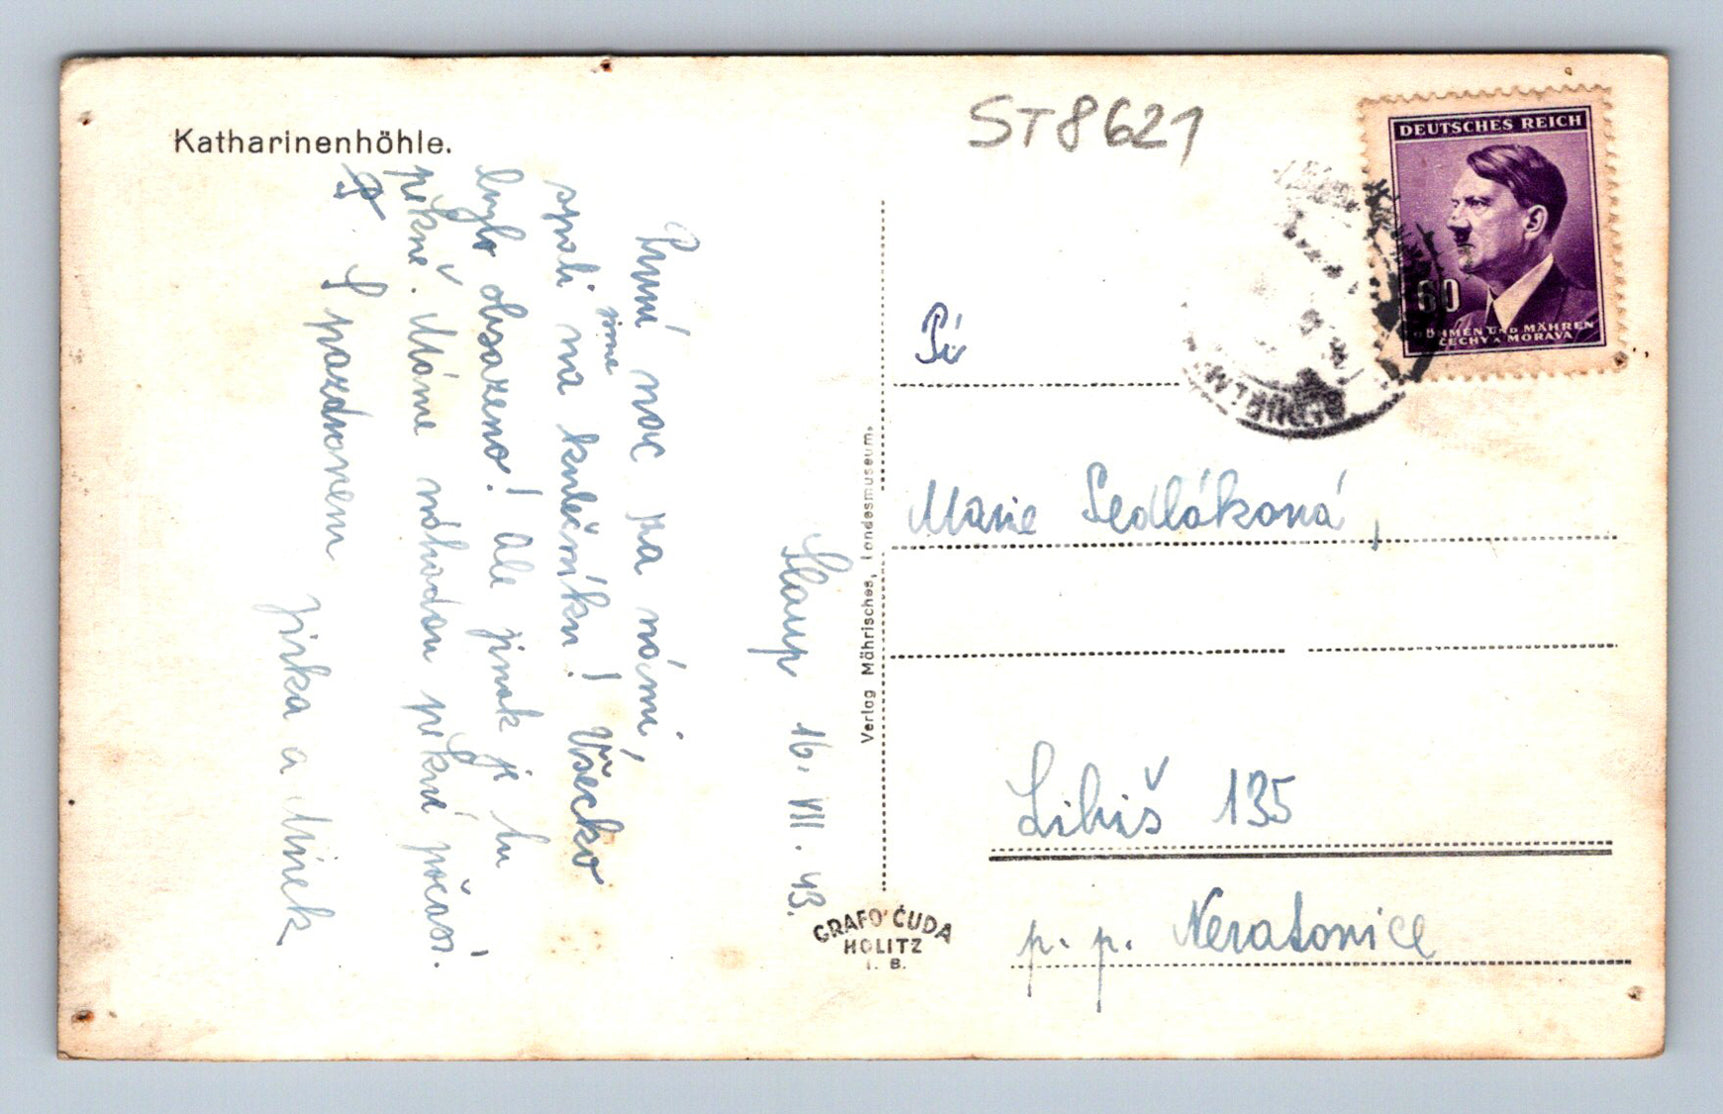 Katharinenhöhle.
ST8621
DEUTSCHES REICH
60
BÖHMEN UND MÄHREN
ČECHY A MORAVA
Sloup 16. VII. 43.
První noc na námi
spali jsme na kulečníku! Všecko
bylo obsazeno! Ale jinak je tu
pěkně. Máme náhodou pěkné počasí.
S pozdravem
Jirka a Mirek
Verlag Mährisches, Landesmuseum.
GRAFO ČUDA
HOLITZ
I. B.
Pí
Marie Sedláková,
Libiš 135
p. p. Neratovice